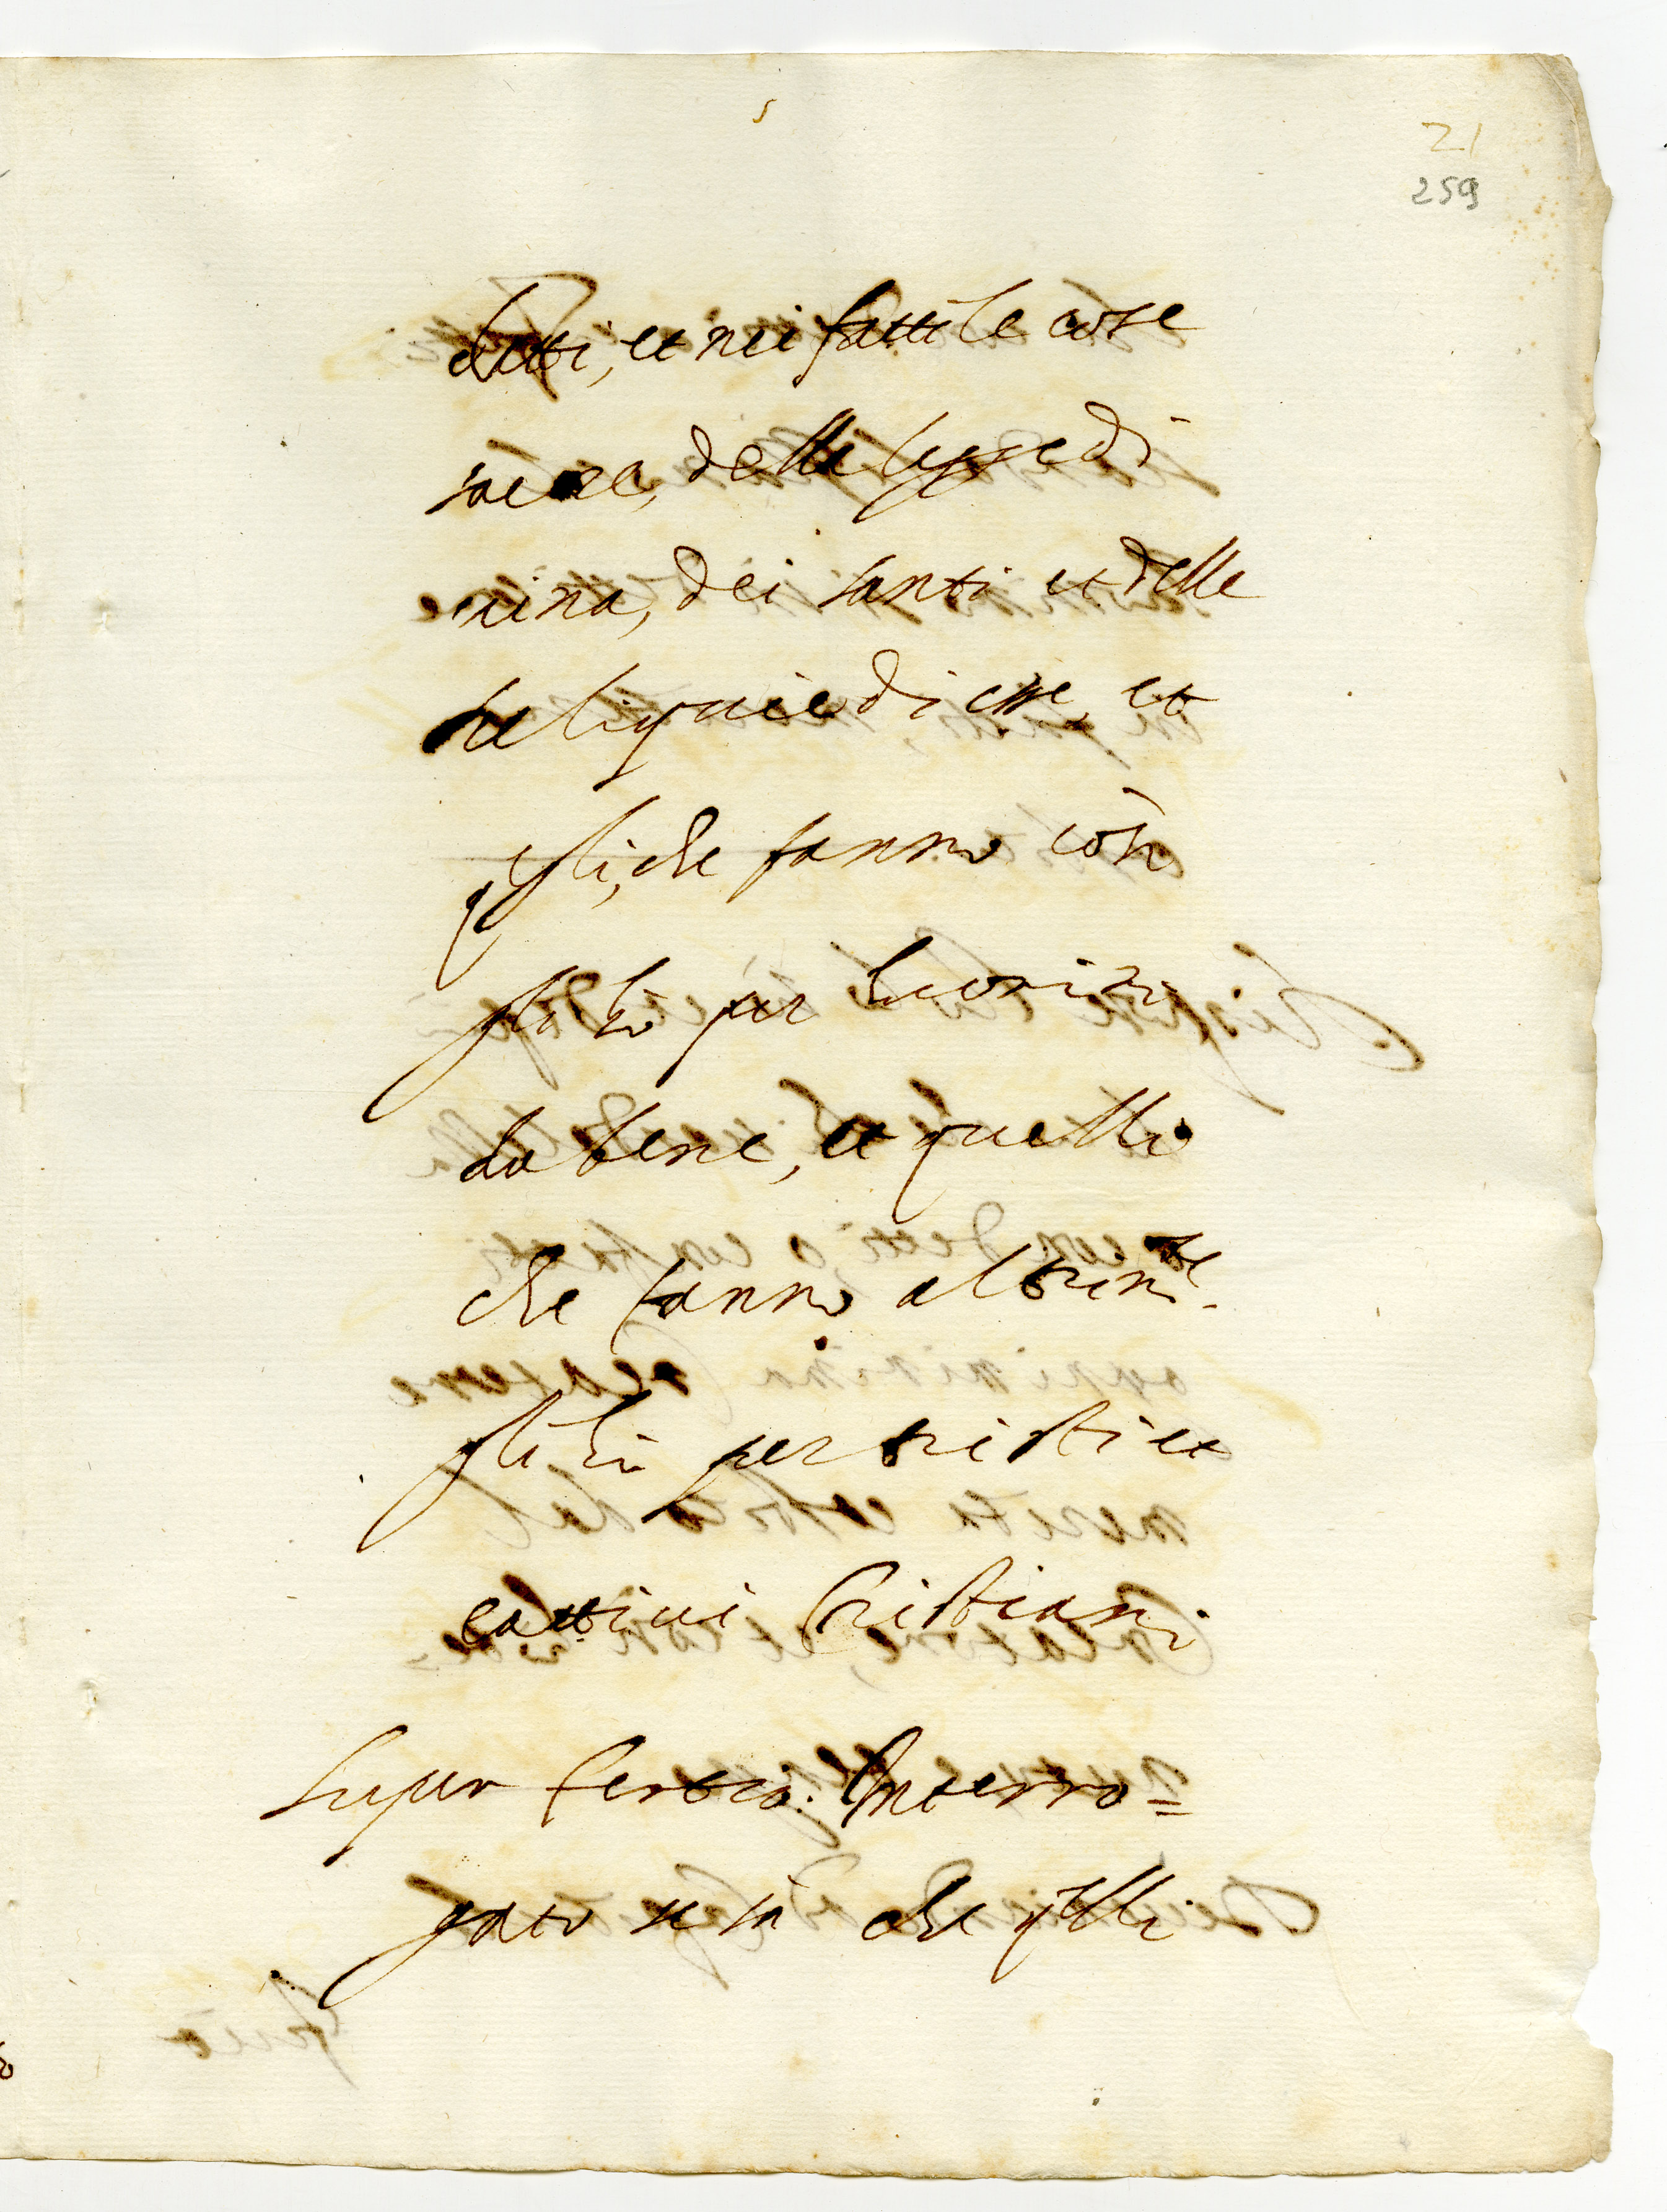 21
259
detti, et nei fatti le cose
sacre, della legge di
uina, dei santi et delle
reliquie di esse, et
q̃lli, che fanno così
gli hò per huomini
da bene, et quelli
che fanno altrim.te
gli hò per tristi et
cattiui Cristiani.
Super tertio. Interro=
gato se sà che q̃lli